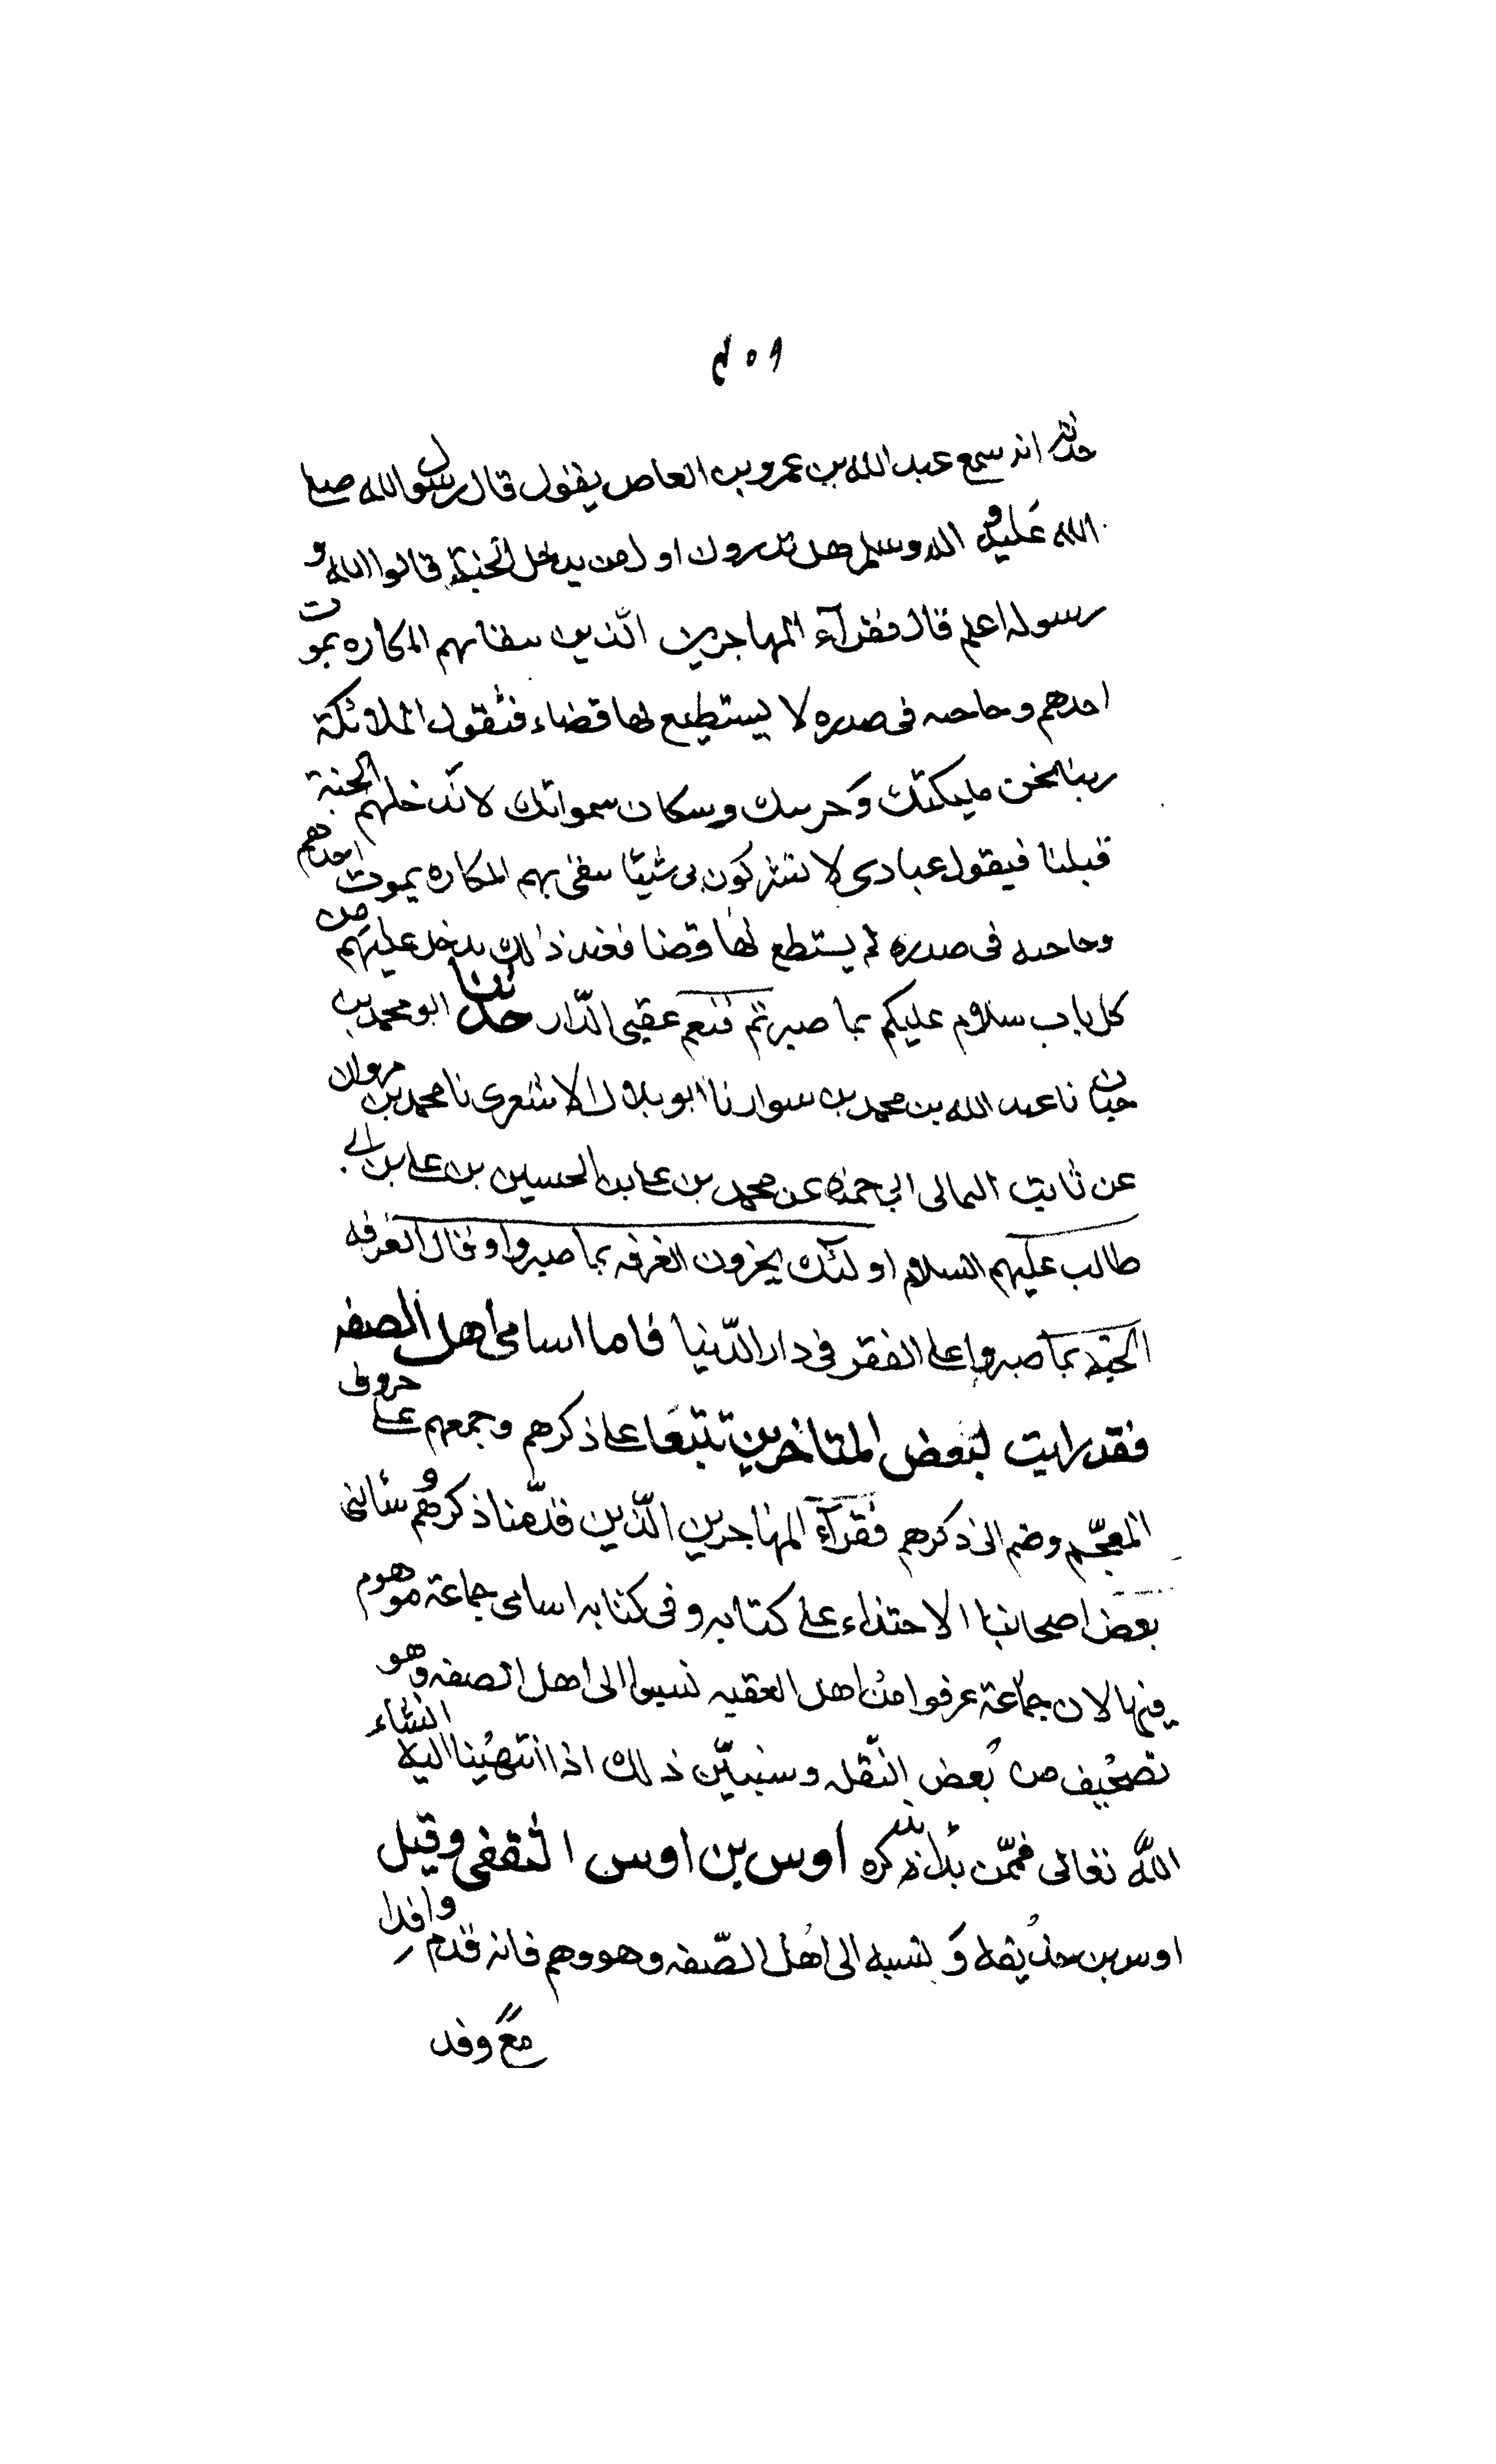 ٤٠٩
حدثه انه سمع عبد الله بن عمرو بن العاص يقول قال رسول الله صلى
الله عليه و اله وسلم هل تدرون اول من يدخل الجنة قالوا الله و
رسوله اعلم قال فقرآء المهاجرين الذين يتقى بهم المكاره يموت
احدهم وحاجته فى صدره لا يستطيع لها قضاء فتقول الملائكة
ربنا نحن مليكتك وحرسك وسكان سمواتك لا تدخلهم الجنة
قبلنا فيقول عبادى لا تشركون بى شيئا يتقى بهم المكاره يموت احدهم
وحاجته فى صدره لم يستطع لها قضا فعند ذلك يدخل عليهم من
كل باب سلام عليكم بما صبرتم فنعم عقبى الدّار حدثنا ابو محمد بن
حيان نا عبد الله بن محمد بن سوار نا ابو بلال الاشعرى نا محمد بن مروان
عن ثابت الثمالى ابي حمزه عن محمد بن على بن الحسين بن على بن ابي
طالب عليهم السلام اولئك يجزون الغرفه بما صبروا وقال الغرفه
الجنة بما صبروا على الفقر فى دار الدّنيا فاما اسامى اهل الصفه
فقد رايت لبعض المتاخرين تتبعا على ذكرهم وجمعهم على حروف
المعجّم وضم الى ذكرهم فقرآء المهاجرين الّذين قدّمنا ذكرهم و سألنى
بعض اصحابنا الاحتذاء على كتابه وفى كتابه اسامى جماعة موهوم
فيها لان جماعة عرفوا من اهل القبه نسبوا الى اهل الصفه وهو
تصحيف من بعض النّقله وسنبيّن ذلك اذا انتهينا اليه انشاء
اللّه تعالى فممّن بدأنا بذكره اوس بن اوس الثقفى وقيل
اوس بن حذيفه و نسبه الى اهل الصّفه وهو وهم فانه قدم وافدا
مع وفد